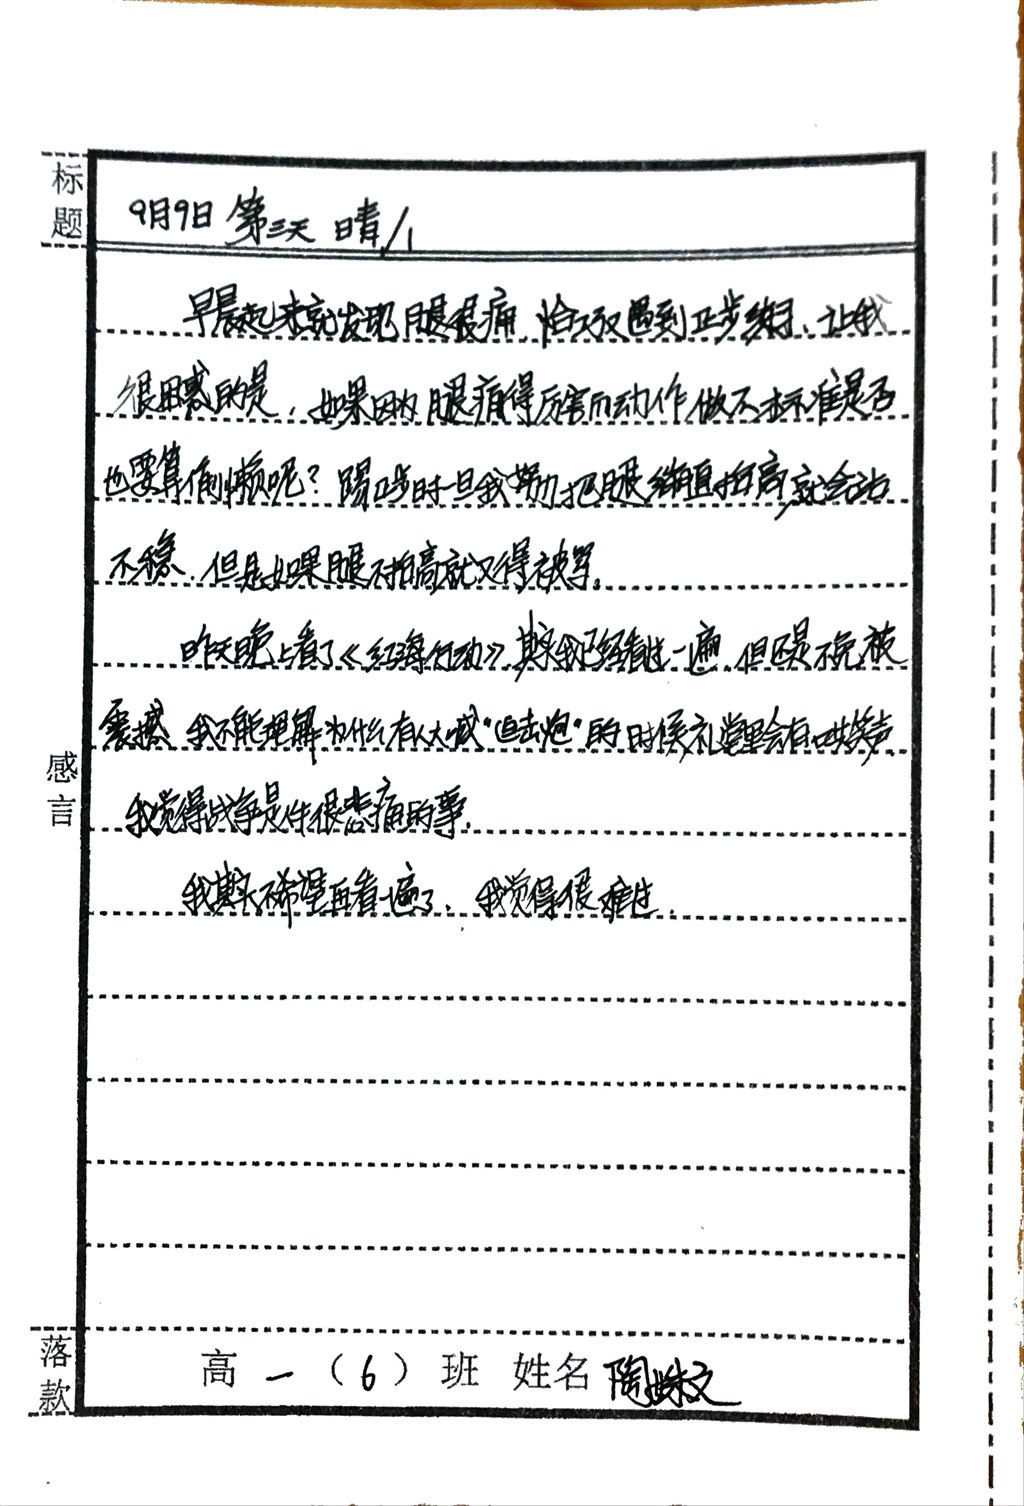 标题
9月9日 第三天 晴
早晨起来就发现腿很痛，恰巧又遇到正步练习、让我
很困惑的是，如果因为腿痛得厉害而动作做不标准是否
也要算偷懒呢？踢正步时一旦我努力把腿绷直抬高，就会站
不稳、但是如果腿不抬高就又得被骂。
昨天晚上看了《红海行动》，其实我已经看过一遍，但还是不免被
震撼，我不能理解为什么有人大喊“迫击炮”的时候礼堂里会有哄笑声
我觉得战争是件很悲痛的事。
感言
我其实不希望再看一遍了、我觉得很难过.
落款
高一（6）班 姓名 陶姝文